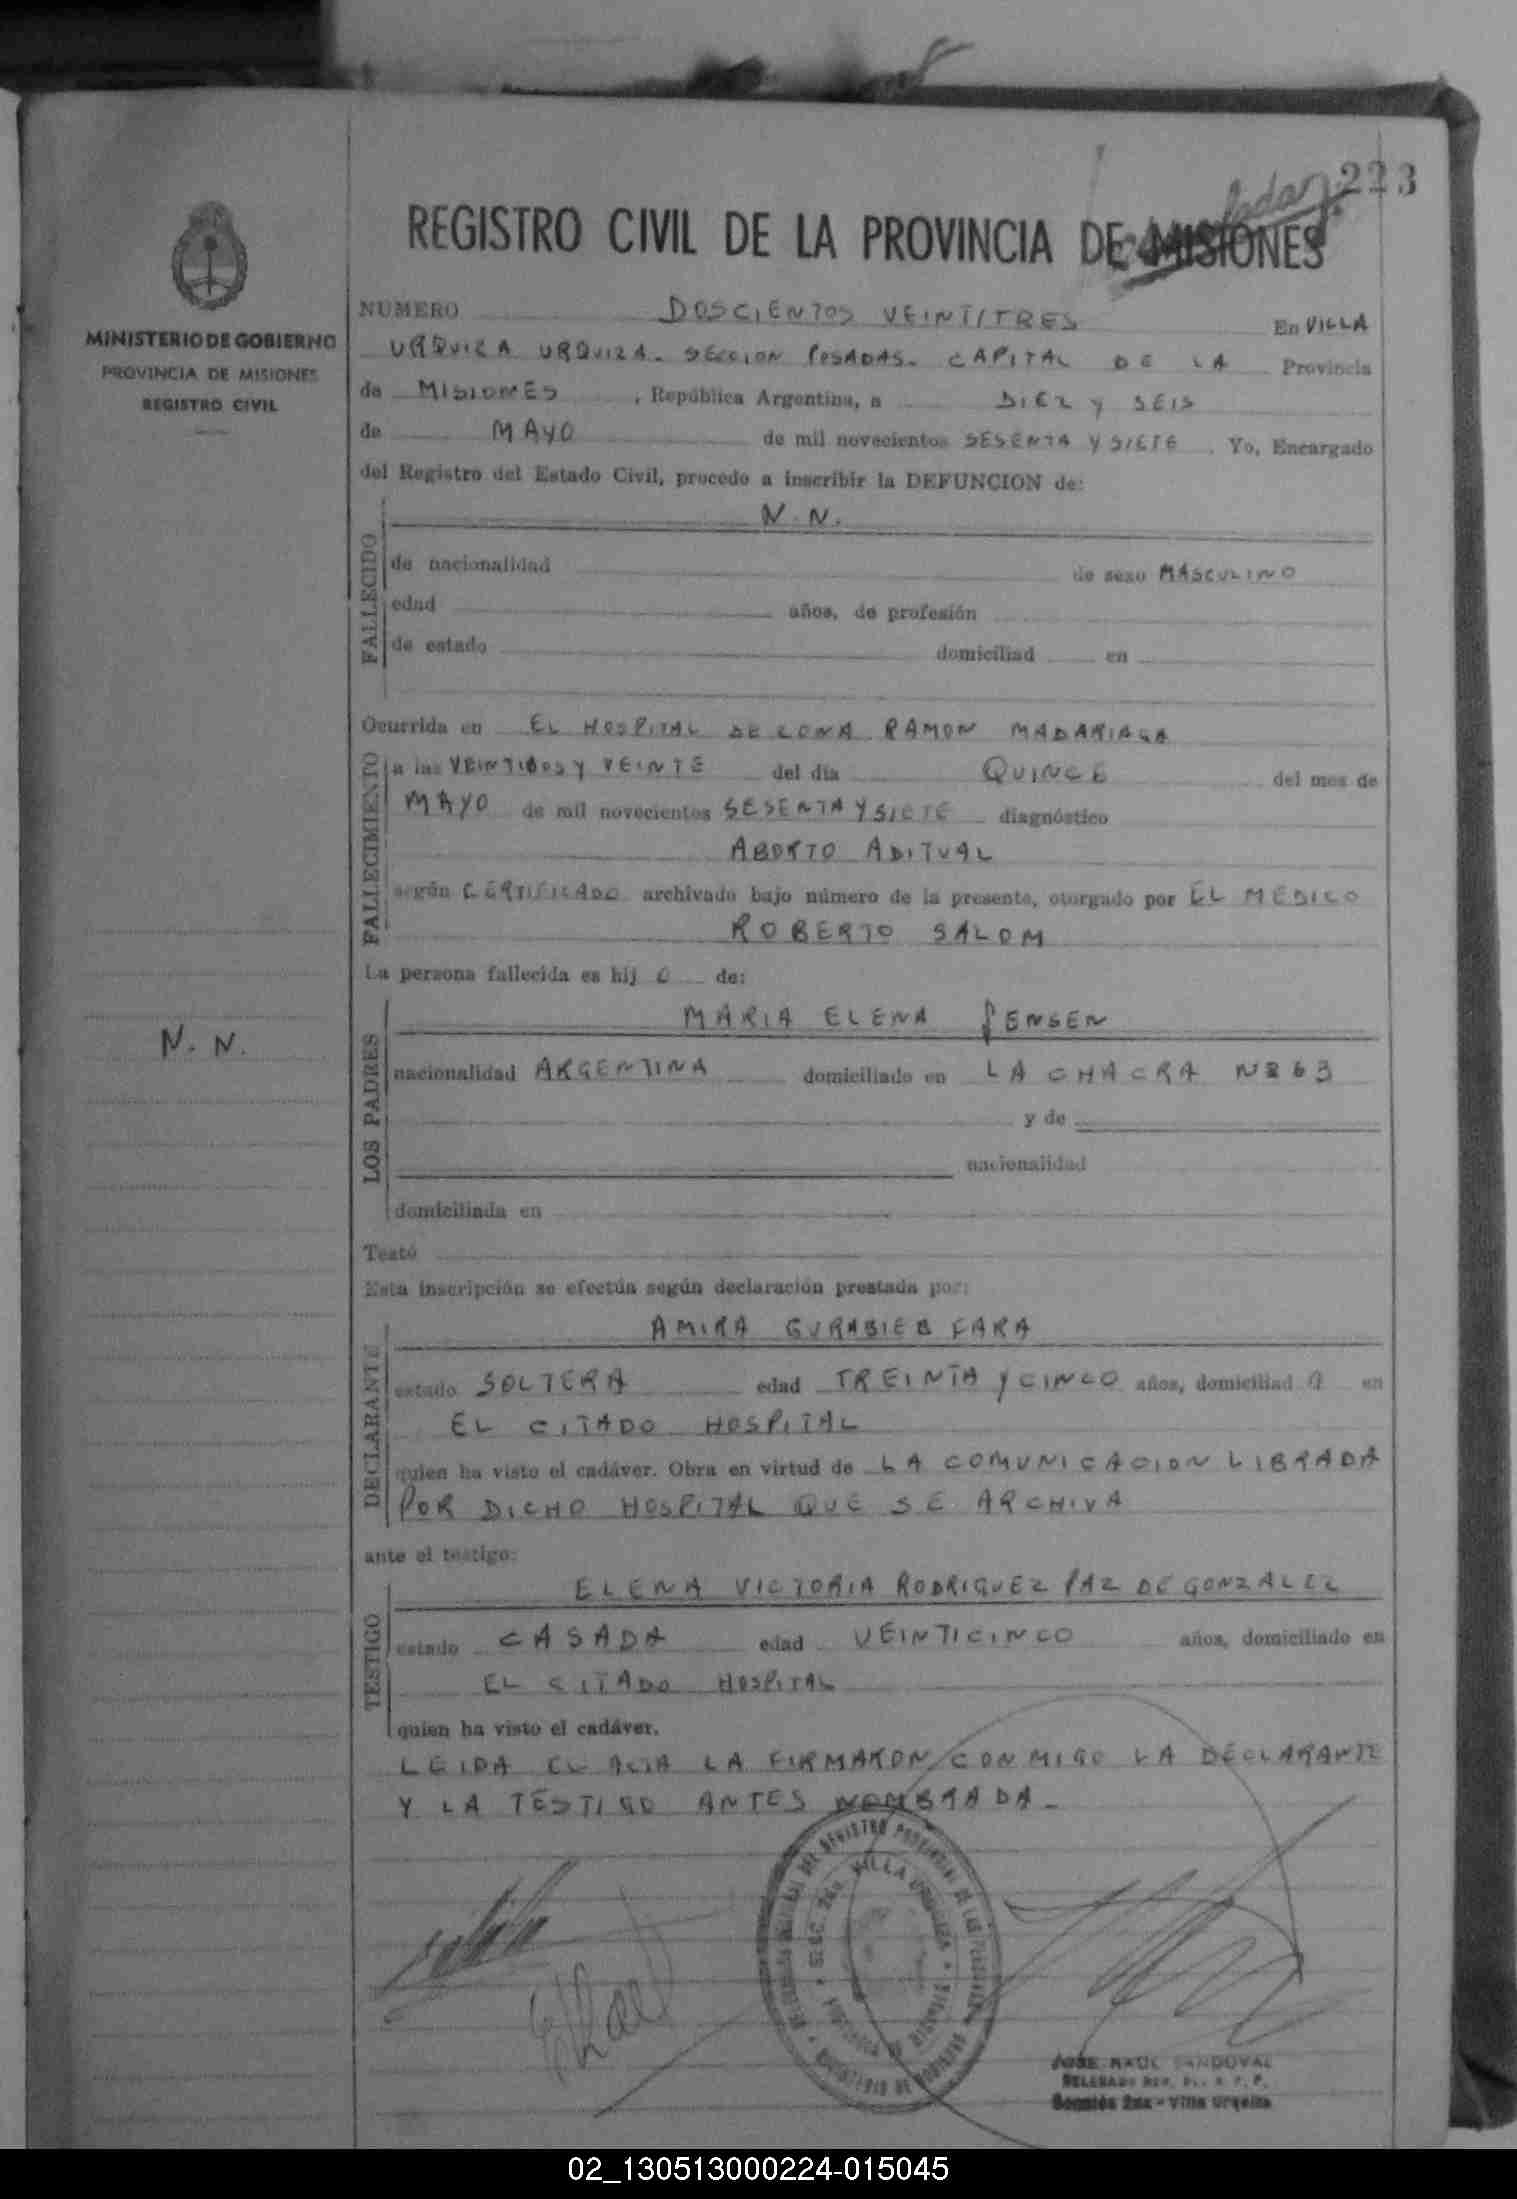 223
REGISTRO CIVIL DE LA PROVINCIA DE MISIONES
MINISTERIO DE GOBIERNO
PROVINCIA DE MISIONES
REGISTRO CIVIL
NUMERO DOSCIENTOS VEINTITRES En VILLA
URQUIZA URQUIZA. SECCION POSADAS. CAPITAL DE LA Provincia
de MISIONES, República Argentina, a DIEZ y SEIS
de MAYO de mil novecientos SESENTA Y SIETE. Yo, Encargado
del Registro del Estado Civil, procedo a inscribir la DEFUNCION de:
N. N.
FALLECIDO
de nacionalidad de sexo MASCULINO
edad años, de profesión
de estado domiciliad en
Ocurrida en EL HOSPITAL DE ZONA RAMON MADARIAGA
FALLECIMIENTO
a las VEINTIDOS y VEINTE del día QUINCE del mes de
MAYO de mil novecientos SESENTA Y SIETE diagnóstico
ABORTO ADITUAL
según CERTIFICADO archivado bajo número de la presente, otorgado por EL MEDICO
ROBERTO SALOM
La persona fallecida es hij O de:
MARIA ELENA JENSEN
N. N.
LOS PADRES
nacionalidad ARGENTINA domiciliado en LA CHACRA Nº 63
y de
nacionalidad
domiciliada en
Testó
Esta inscripción se efectúa según declaración prestada por:
AMIRA GURABIEB FARA
DECLARANTE
estado SOLTERA edad TREINTA y CINCO años, domiciliad A en
EL CITADO HOSPITAL
quien ha visto el cadáver. Obra en virtud de LA COMUNICACION LIBRADA
POR DICHO HOSPITAL QUE SE ARCHIVA
ante el testigo:
ELENA VICTORIA RODRIGUEZ PAZ DE GONZALEZ
TESTIGO
estado CASADA edad VEINTICINCO años, domiciliado en
EL CITADO HOSPITAL
quien ha visto el cadáver.
LEIDA EL ACTA LA FIRMARON CONMIGO LA DECLARANTE
Y LA TESTIGO ANTES NOMBRADA.
VILLA URQUIZA
JOSE RAUL SANDOVAL
Sección 2da - Villa Urquiza
02_130513000224-015045